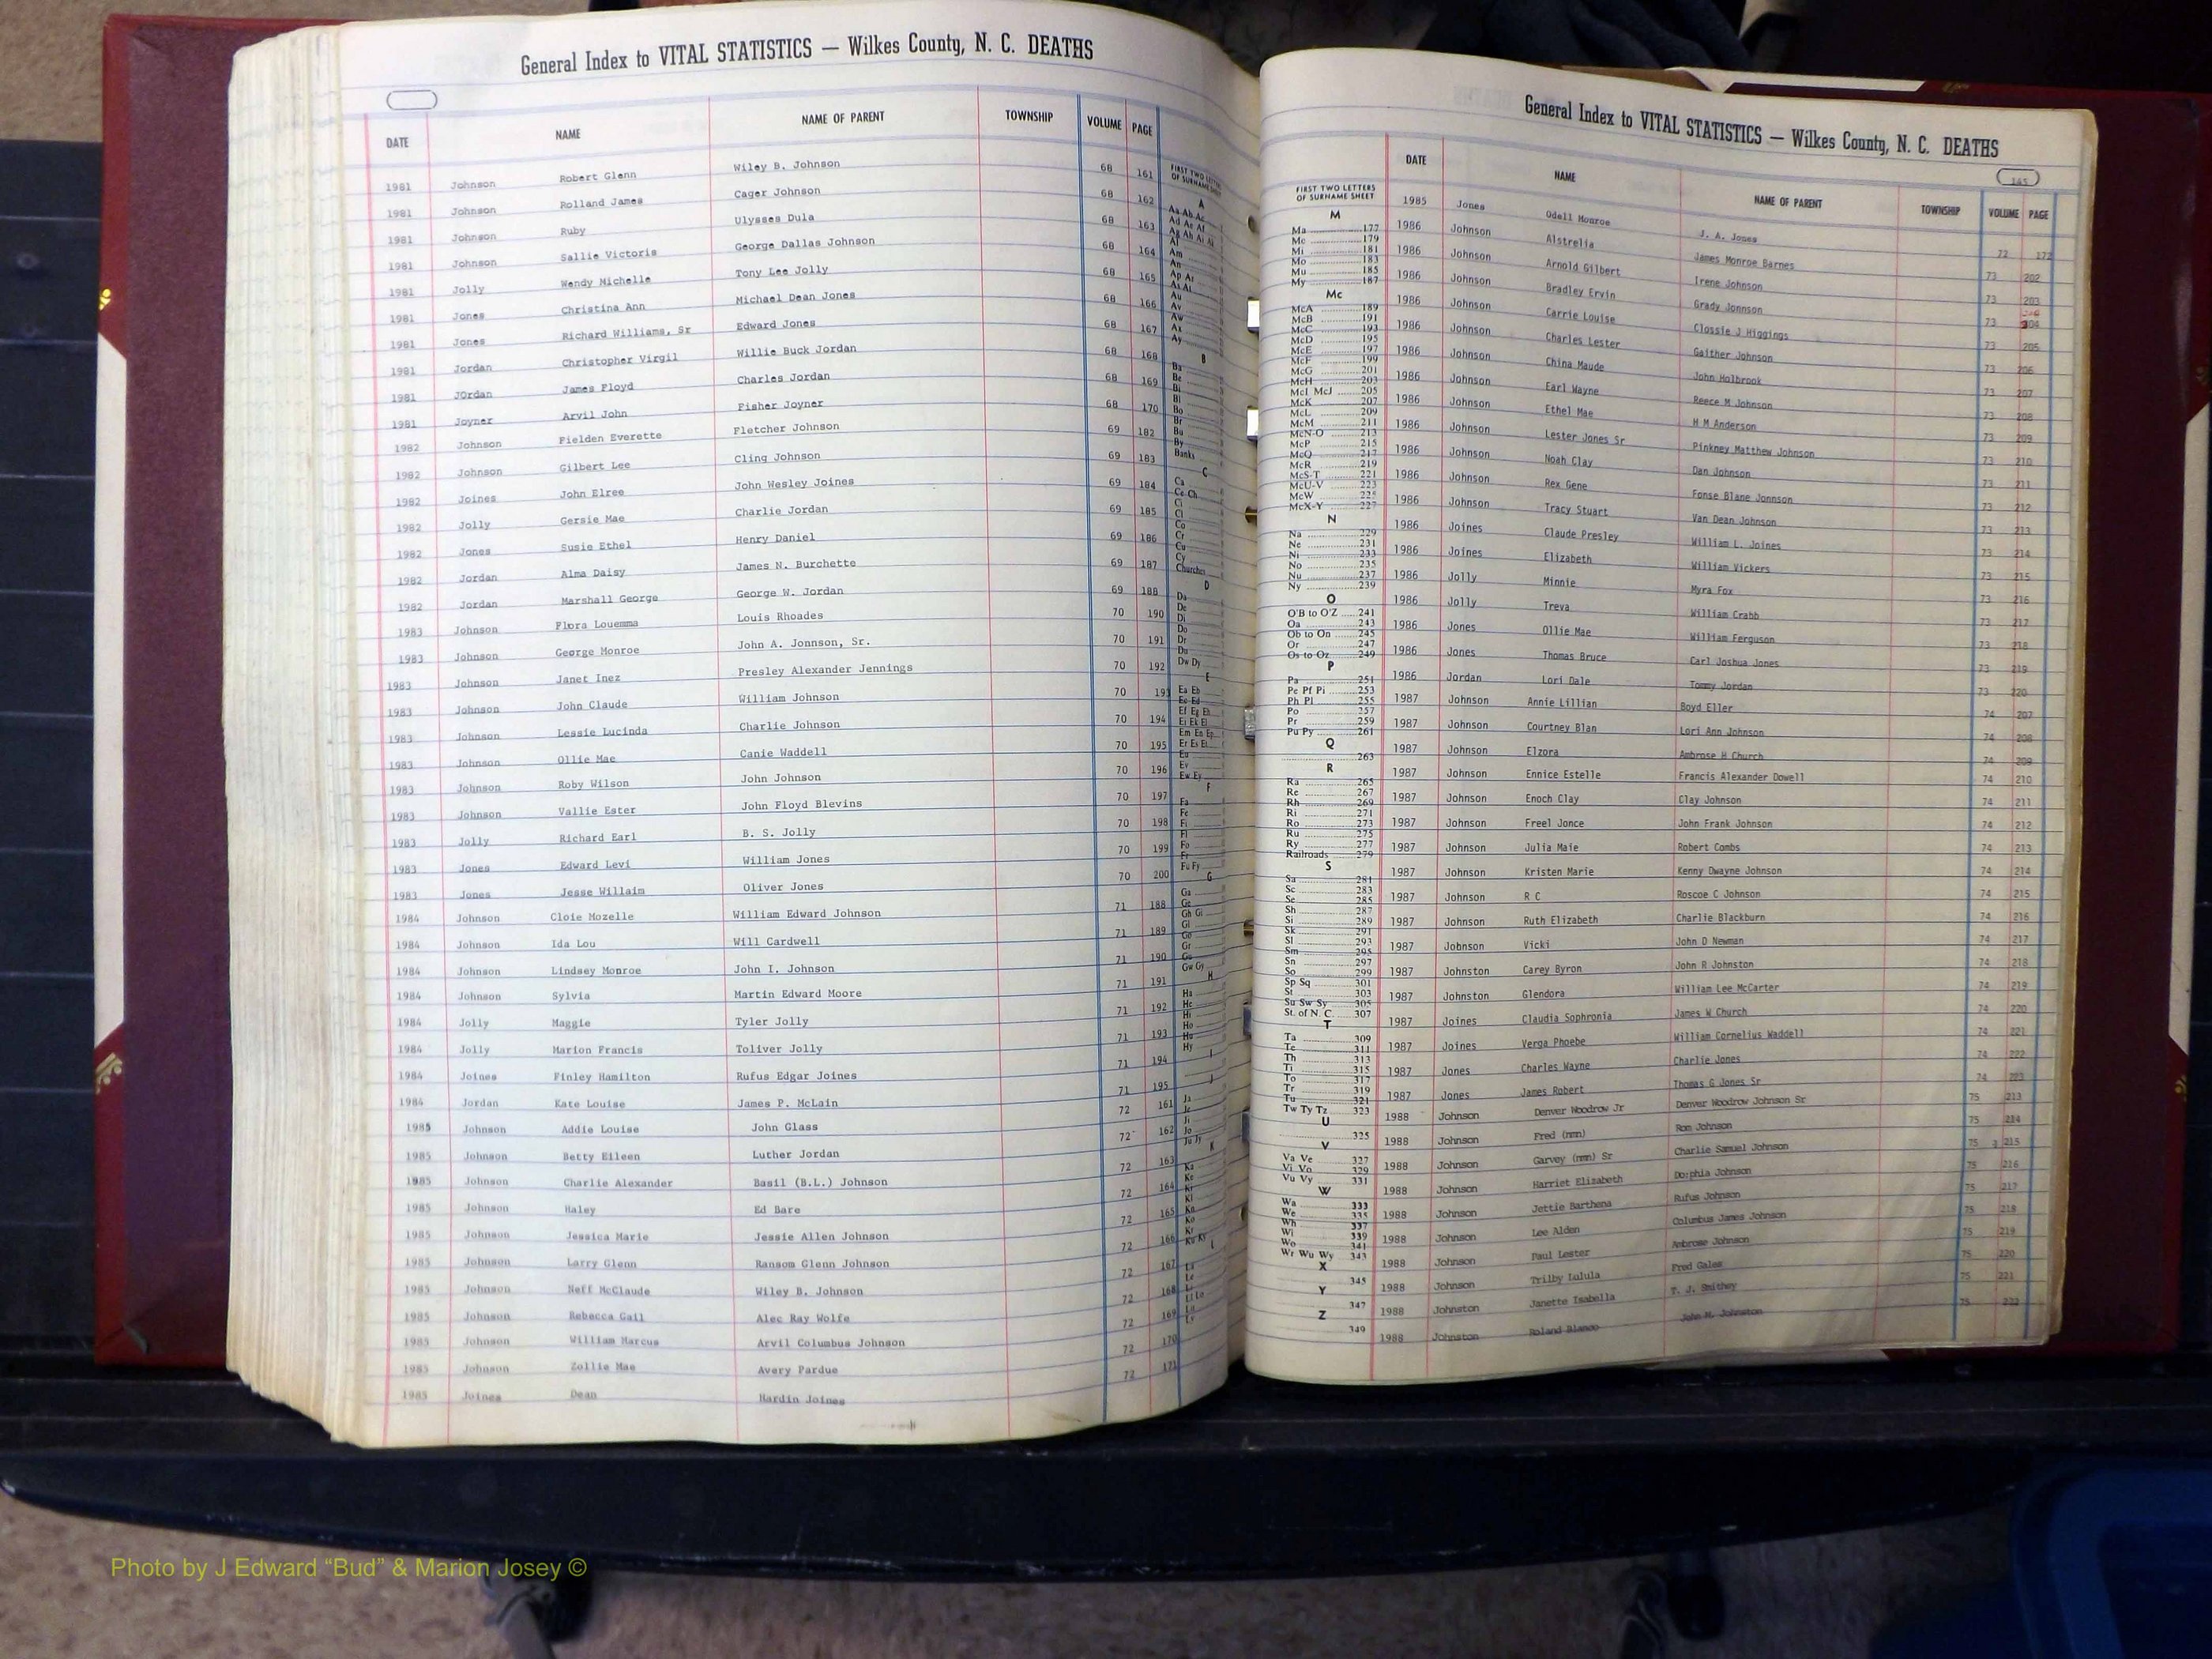 General Index to VITAL STATISTICS — Wilkes County, N. C. DEATHS
DATE NAME NAME OF PARENT TOWNSHIP VOLUME PAGE
1981 Johnson Robert Glenn Wiley B. Johnson 68 161
1981 Johnson Rolland James Cager Johnson 68 162
1981 Johnson Ruby Ulysses Dula 68 163
1981 Johnson Sallie Victoris George Dallas Johnson 68 164
1981 Jolly Wendy Michelle Tony Lee Jolly 68 165
1981 Jones Christina Ann Michael Dean Jones 68 166
1981 Jones Richard Williams, Sr Edward Jones 68 167
1981 Jordan Christopher Virgil Willie Buck Jordan 68 168
1981 JOrdan James Floyd Charles Jordan 68 169
1981 Joyner Arvil John Fisher Joyner 68 170
1982 Johnson Fielden Everette Fletcher Johnson 69 182
1982 Johnson Gilbert Lee Cling Johnson 69 183
1982 Joines John Elree John Wesley Joines 69 184
1982 Jolly Gersie Mae Charlie Jordan 69 185
1982 Jones Susie Ethel Henry Daniel 69 186
1982 Jordan Alma Daisy James N. Burchette 69 187
1982 Jordan Marshall George George W. Jordan 69 188
1983 Johnson Flora Louemma Louis Rhoades 70 190
1983 Johnson George Monroe John A. Jonnson, Sr. 70 191
1983 Johnson Janet Inez Presley Alexander Jennings 70 192
1983 Johnson John Claude William Johnson 70 193
1983 Johnson Lessie Lucinda Charlie Johnson 70 194
1983 Johnson Ollie Mae Canie Waddell 70 195
1983 Johnson Roby Wilson John Johnson 70 196
1983 Johnson Vallie Ester John Floyd Blevins 70 197
1983 Jolly Richard Earl B. S. Jolly 70 198
1983 Jones Edward Levi William Jones 70 199
1983 Jones Jesse Willaim Oliver Jones 70 200
1984 Johnson Cloie Mozelle William Edward Johnson 71 188
1984 Johnson Ida Lou Will Cardwell 71 189
1984 Johnson Lindsey Monroe John I. Johnson 71 190
1984 Johnson Sylvia Martin Edward Moore 71 191
1984 Jolly Maggie Tyler Jolly 71 192
1984 Jolly Marion Francis Toliver Jolly 71 193
1984 Joines Finley Hamilton Rufus Edgar Joines 71 194
1984 Jordan Kate Louise James P. McLain 71 195
1985 Johnson Addie Louise John Glass 72 161
1985 Johnson Betty Eileen Luther Jordan 72 162
1985 Johnson Charlie Alexander Basil (B.L.) Johnson 72 163
1985 Johnson Haley Ed Bare 72 164
1985 Johnson Jessica Marie Jessie Allen Johnson 72 165
1985 Johnson Larry Glenn Ransom Glenn Johnson 72 166
1985 Johnson Neff McClaude Wiley B. Johnson 72 167
1985 Johnson Rebecca Gail Alec Ray Wolfe 72 168
1985 Johnson William Marcus Arvil Columbus Johnson 72 169
1985 Johnson Zollie Mae Avery Pardue 72 170
1985 Joines Dean Hardin Joines 72 171
FIRST TWO LETTERS
OF SURNAME SHEET
A
Aa Ab Ac
Al
Am
An
Au
Av
Aw
Ax
Ay
B
Ba
Be
Bi
Bl
Bo
Br
Bu
By
Banks
C
Ca
Ce Ch
Ci
Cl
Co
Cr
Cu
Cy
Churches
D
Da
De
Di
Do
Dr
Du
Dw Dy
E
Ea Eb
Ec Ed
Ef Eg Eh
Ei Ek El
Em En Ep
Er Es Et
Eu
Ev
Ew Ey
F
Fa
Fe
Fi
Fl
Fo
Fr
Fu Fy
G
Ga
Ge
Gh Gi
Gl
Go
Gr
Gu
Gw Gy
H
Ha
He
Hi
Ho
Hu
Hy
I
J
Ja
Je
Ji
Jo
Ju Jy
K
Ka
Ke
Ki
Kl
Kn
Ko
Kr
Ku Ky
L
La
Le
Li
Ll Lo
Lu
Ly
General Index to VITAL STATISTICS — Wilkes County, N. C. DEATHS
145
DATE NAME NAME OF PARENT TOWNSHIP VOLUME PAGE
FIRST TWO LETTERS
OF SURNAME SHEET
M
Ma 177
Me 179
Mi 181
Mo 183
Mu 185
My 187
Mc
McA 189
McB 191
McC 193
McD 195
McE 197
McF 199
McG 201
McH 203
McI McJ 205
McK 207
McL 209
McM 211
McN-O 213
McP 215
McQ 217
McR 219
McS-T 221
McU-V 223
McW 225
McX-Y 227
N
Na 229
Ne 231
Ni 233
No 235
Nu 237
Ny 239
O
O'B to O'Z 241
Oa 243
Ob to On 245
Or 247
Os to Oz 249
P
Pa 251
Pe Pf Pi 253
Ph Pl 255
Po 257
Pr 259
Pu Py 261
Q
263
R
Ra 265
Re 267
Rh 269
Ri 271
Ro 273
Ru 275
Ry 277
Railroads 279
S
Sa 281
Sc 283
Se 285
Sh 287
Si 289
Sk 291
Sl 293
Sm 295
Sn 297
So 299
Sp Sq 301
St 303
Su Sw Sy 305
St. of N. C. 307
T
Ta 309
Te 311
Th 313
Ti 315
To 317
Tr 319
Tu 321
Tw Ty Tz 323
U
325
V
Va Ve 327
Vi Vo 329
Vu Vy 331
W
Wa 333
We 335
Wh 337
Wi 339
Wo 341
Wr Wu Wy 343
X
345
Y
347
Z
349
1985 Jones Odell Monroe J. A. Jones 72 172
1986 Johnson Alstrelia James Monroe Barnes 73 202
1986 Johnson Arnold Gilbert Irene Johnson 73 203
1986 Johnson Bradley Ervin Grady Jonnson 73 204
1986 Johnson Carrie Louise Clossie J Higgings 73 205
1986 Johnson Charles Lester Gaither Johnson 73 206
1986 Johnson China Maude John Holbrook 73 207
1986 Johnson Earl Wayne Reece M Johnson 73 208
1986 Johnson Ethel Mae H M Anderson 73 209
1986 Johnson Lester Jones Sr Pinkney Matthew Johnson 73 210
1986 Johnson Noah Clay Dan Johnson 73 211
1986 Johnson Rex Gene Fonse Blane Jonnson 73 212
1986 Johnson Tracy Stuart Van Dean Johnson 73 213
1986 Joines Claude Presley William L. Joines 73 214
1986 Joines Elizabeth William Vickers 73 215
1986 Jolly Minnie Myra Fox 73 216
1986 Jolly Treva William Crabb 73 217
1986 Jones Ollie Mae William Ferguson 73 218
1986 Jones Thomas Bruce Carl Joshua Jones 73 219
1986 Jordan Lori Dale Tommy Jordan 73 220
1987 Johnson Annie Lillian Boyd Eller 74 207
1987 Johnson Courtney Blan Lori Ann Johnson 74 208
1987 Johnson Elzora Ambrose H Church 74 209
1987 Johnson Ennice Estelle Francis Alexander Dowell 74 210
1987 Johnson Enoch Clay Clay Johnson 74 211
1987 Johnson Freel Jonce John Frank Johnson 74 212
1987 Johnson Julia Maie Robert Combs 74 213
1987 Johnson Kristen Marie Kenny Dwayne Johnson 74 214
1987 Johnson R C Roscoe C Johnson 74 215
1987 Johnson Ruth Elizabeth Charlie Blackburn 74 216
1987 Johnson Vicki John D Newman 74 217
1987 Johnston Carey Byron John R Johnston 74 218
1987 Johnston Glendora William Lee McCarter 74 219
1987 Joines Claudia Sophronia James W Church 74 220
1987 Joines Verga Phoebe William Cornelius Waddell 74 221
1987 Jones Charles Wayne Charlie Jones 74 222
1987 Jones James Robert Thomas G Jones Sr 74 223
1988 Johnson Denver Woodrow Jr Denver Woodrow Johnson Sr 75 213
1988 Johnson Fred (nmn) Rom Johnson 75 214
1988 Johnson Garvey (nmn) Sr Charlie Samuel Johnson 75 215
1988 Johnson Harriet Elizabeth Dorphia Johnson 75 216
1988 Johnson Jettie Barthena Rufus Johnson 75 217
1988 Johnson Lee Alden Columbus James Johnson 75 218
1988 Johnson Paul Lester Ambrose Johnson 75 219
1988 Johnson Trilby Lulula Fred Gales 75 220
1988 Johnston Janette Isabella T. J. Smithey 75 221
1988 Johnston Roland Blanco John M. Johnston 75 222
Photo by J Edward “Bud” & Marion Josey ©